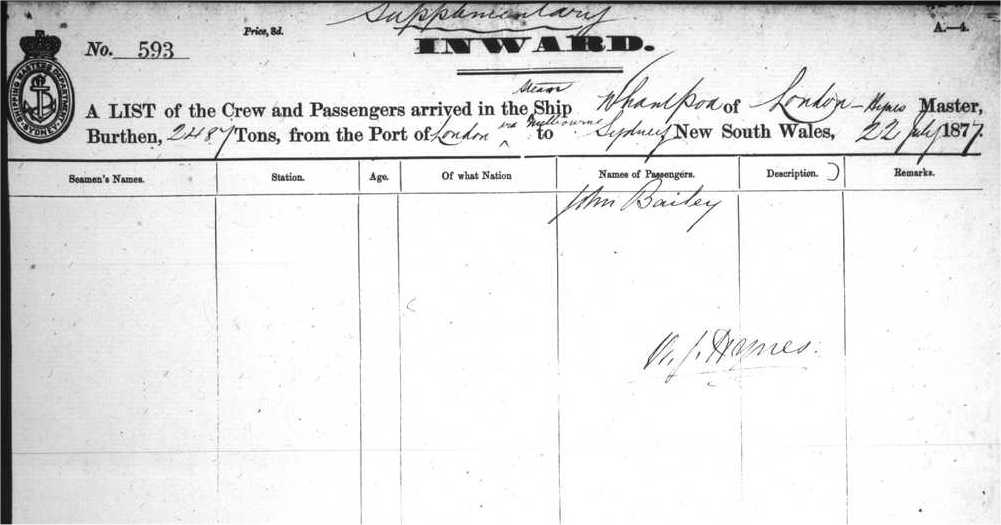 Supplementary
Price, 3d.
A.—4.
No. 593
INWARD.
SHIPPING MASTER'S DEPARTMENT SYDNEY
steam
A LIST of the Crew and Passengers arrived in the Ship Whampoa of London - Hymes Master,
Burthen, 2487 Tons, from the Port of London via Melbourne to Sydney, New South Wales, 22 July 1877.
Seamen's Names. Station. Age. Of what Nation Names of Passengers. Description. Remarks.
John Bailey
Haynes.